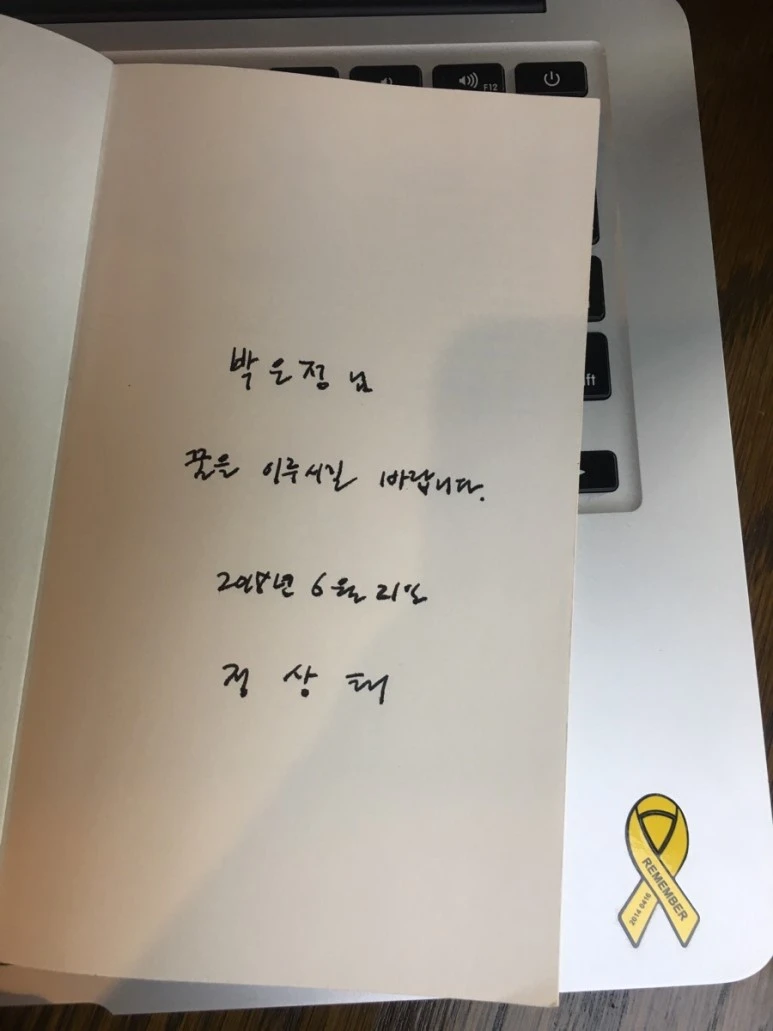 F12
박은정 님
ft
꿈을 이루시길 바랍니다.
2018년 6월 21일
정상태
REMEMBER
2014 0416